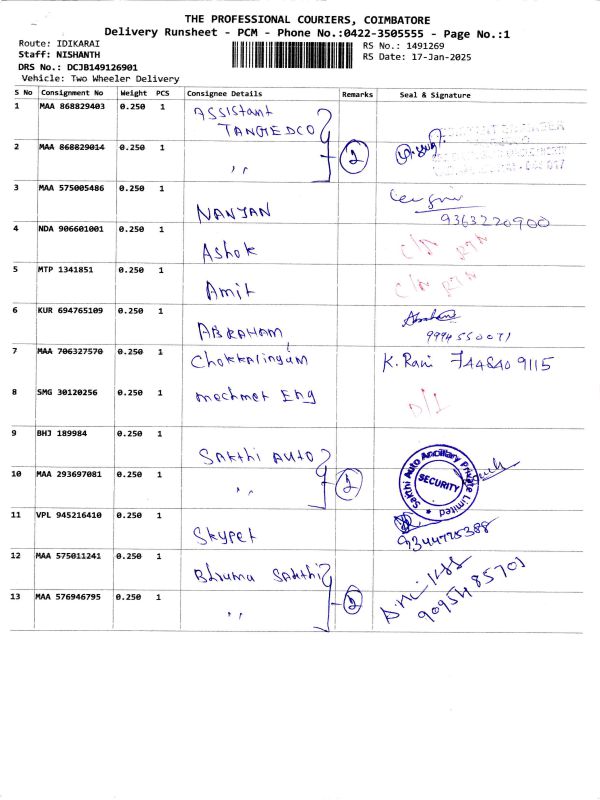 THE PROFESSIONAL COURIERS, COIMBATORE
Delivery Runsheet - PCM - Phone No.:0422-3505555 - Page No.:1
Route: IDIKARAI
RS No.: 1491269
Staff: NISHANTH
RS Date: 17-Jan-2025
DRS No.: DCJB149126901
Vehicle: Two Wheeler Delivery
S No Consignment No Weight PCS Consignee Details Remarks Seal & Signature
1 MAA 868829403 0.250 1 Assistant TANGEDCO
2 MAA 868829014 0.250 1 " 2
3 MAA 575005486 0.250 1 NANJAN 9363220900
4 NDA 906601001 0.250 1 Ashok C/N RTN
5 MTP 1341851 0.250 1 Amit C/N RTN
6 KUR 694765109 0.250 1 ABRAHAM 9994550071
7 MAA 706327570 0.250 1 Chokkalingam K. Rani 7448409115
8 SMG 30120256 0.250 1 mechmet Eng D/L
9 BHJ 189984 0.250 1 SAKTHI AUTO
Sakthi Auto Ancillary Private Limited
SECURITY
10 MAA 293697081 0.250 1 " 2
11 VPL 945216410 0.250 1 Skypet 9344725388
12 MAA 575011241 0.250 1 Bhuma Sakthi
13 MAA 576946795 0.250 1 " 2 9095485701